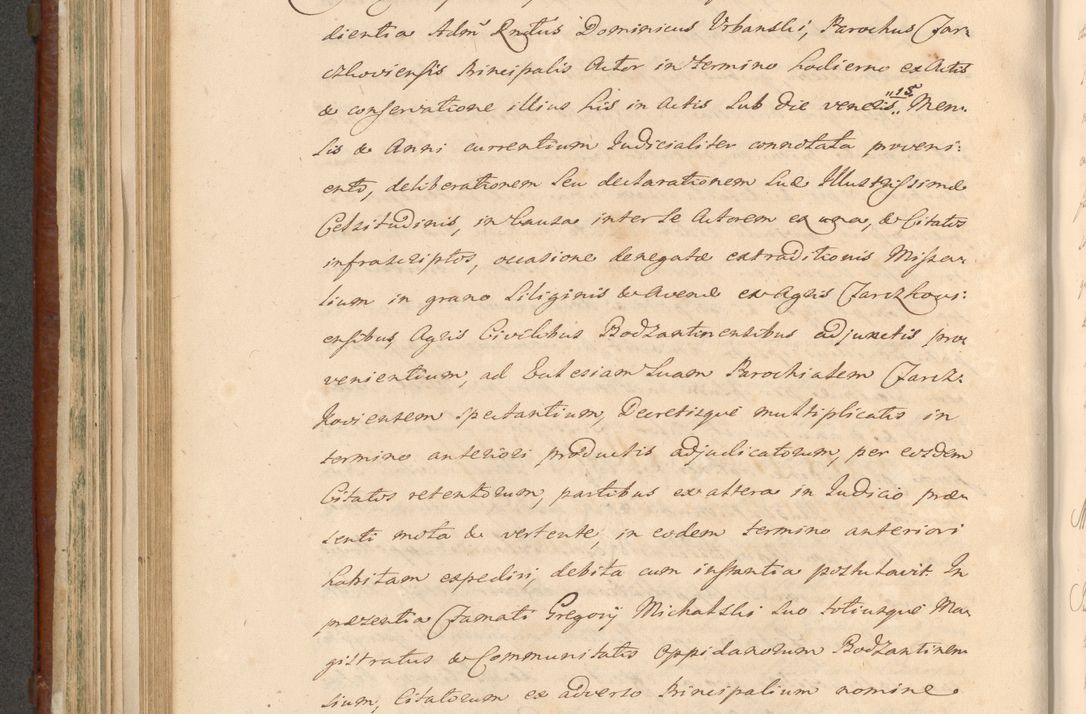 dientia Admʳ Rndus Dominicus Urbanski, Parochus Jar=
czkoviensis Principalis Actor in termino hodierno ex Actis
& conservatione illius his in Actis sub die veneris "15" Men=
sis & Anni currentium Judicialiter connotata proveni:
ente, deliberationem seu declarationem Suæ Illustrissimæ
Celsitudinis, in Causa inter se Actorem ex una, & Citatos
infrascriptos, occasione denegatæ extraditionis Missa=
lium in grano Siliginis & Avenæ ex Agris Jarczkovi:
ensibus Agris Civilibus Bodzantinensibus adjunctis pro=
venientium, ad Eclesiam suam Parochialem Jarcz=
koviensem spectantium, Decretisque multiplicatis in
termino anteriori productis adjudicatorum, per eosdem
Citatos retentorum, partibus ex altera in Judicio præ=
senti mota & vertente, in eodem termino anteriori
habitam expediri, debita cum instantia postulavit. In
præsentia Famati Gregorij Michalski suo totiusque Ma=
gistratus & Communitatis Oppidanorum Bodzantinen
sium, Citatorum ex adverso Principalium nomine